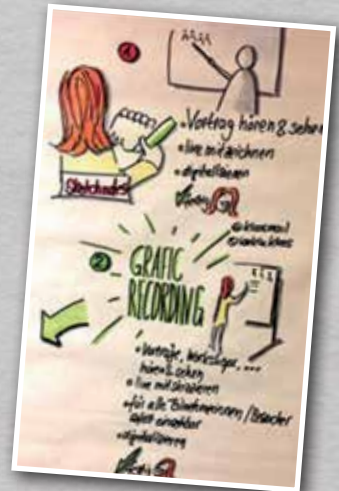 1
• Vortrag hören & sehen
• live mitzeichnen
• digitalisieren
Sketchnotes
2
GRAFIC
RECORDING
• Vorträge, Workshops, ...
hören & sehen
• live mitskizzieren
• für alle Teilnehmerinnen / Besucher
sofort einsehbar
• digitalisieren